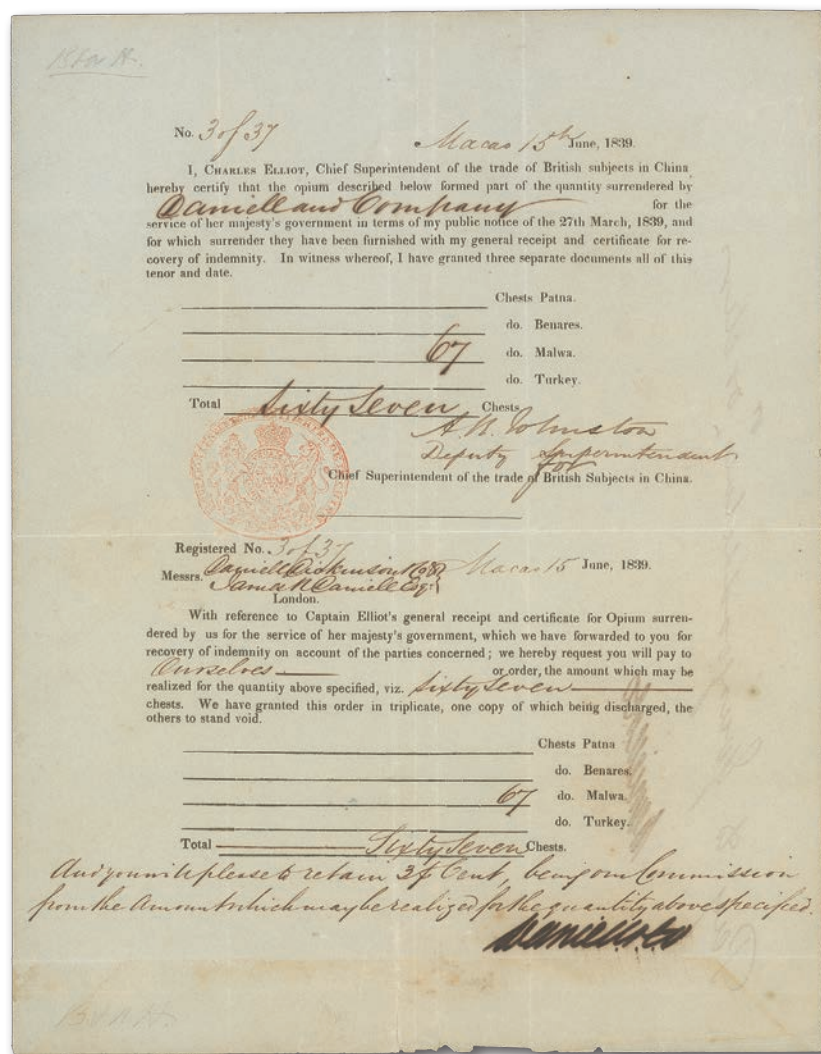 No. 3 of 37
Macao 15th June, 1839.
I, CHARLES ELLIOT, Chief Superintendent of the trade of British subjects in China
hereby certify that the opium described below formed part of the quantity surrendered by
Daniell and Company for the
service of her majesty's government in terms of my public notice of the 27th March, 1839, and
for which surrender they have been furnished with my general receipt and certificate for re-
covery of indemnity. In witness whereof, I have granted three separate documents all of this
tenor and date.
Chests Patna.
do. Benares.
67 do. Malwa.
do. Turkey.
Total Sixty Seven Chests
A. R. Johnston
Deputy Superintendent
for
Chief Superintendent of the trade of British Subjects in China.
Registered No. 3 of 37
Macao 15 June, 1839.
Messrs. Daniell Dickinson & Co
James N Daniell Esqr
London.
With reference to Captain Elliot's general receipt and certificate for Opium surren-
dered by us for the service of her majesty's government, which we have forwarded to you for
recovery of indemnity on account of the parties concerned; we hereby request you will pay to
Ourselves or order, the amount which may be
realized for the quantity above specified, viz. Sixty Seven
chests. We have granted this order in triplicate, one copy of which being discharged, the
others to stand void.
Chests Patna
do. Benares.
67 do. Malwa.
do. Turkey.
Total Sixty Seven Chests.
And you will please to retain 3 p Cent, being our Commission
from the Amount which may be realized for the quantity above specified.
Daniell & Co